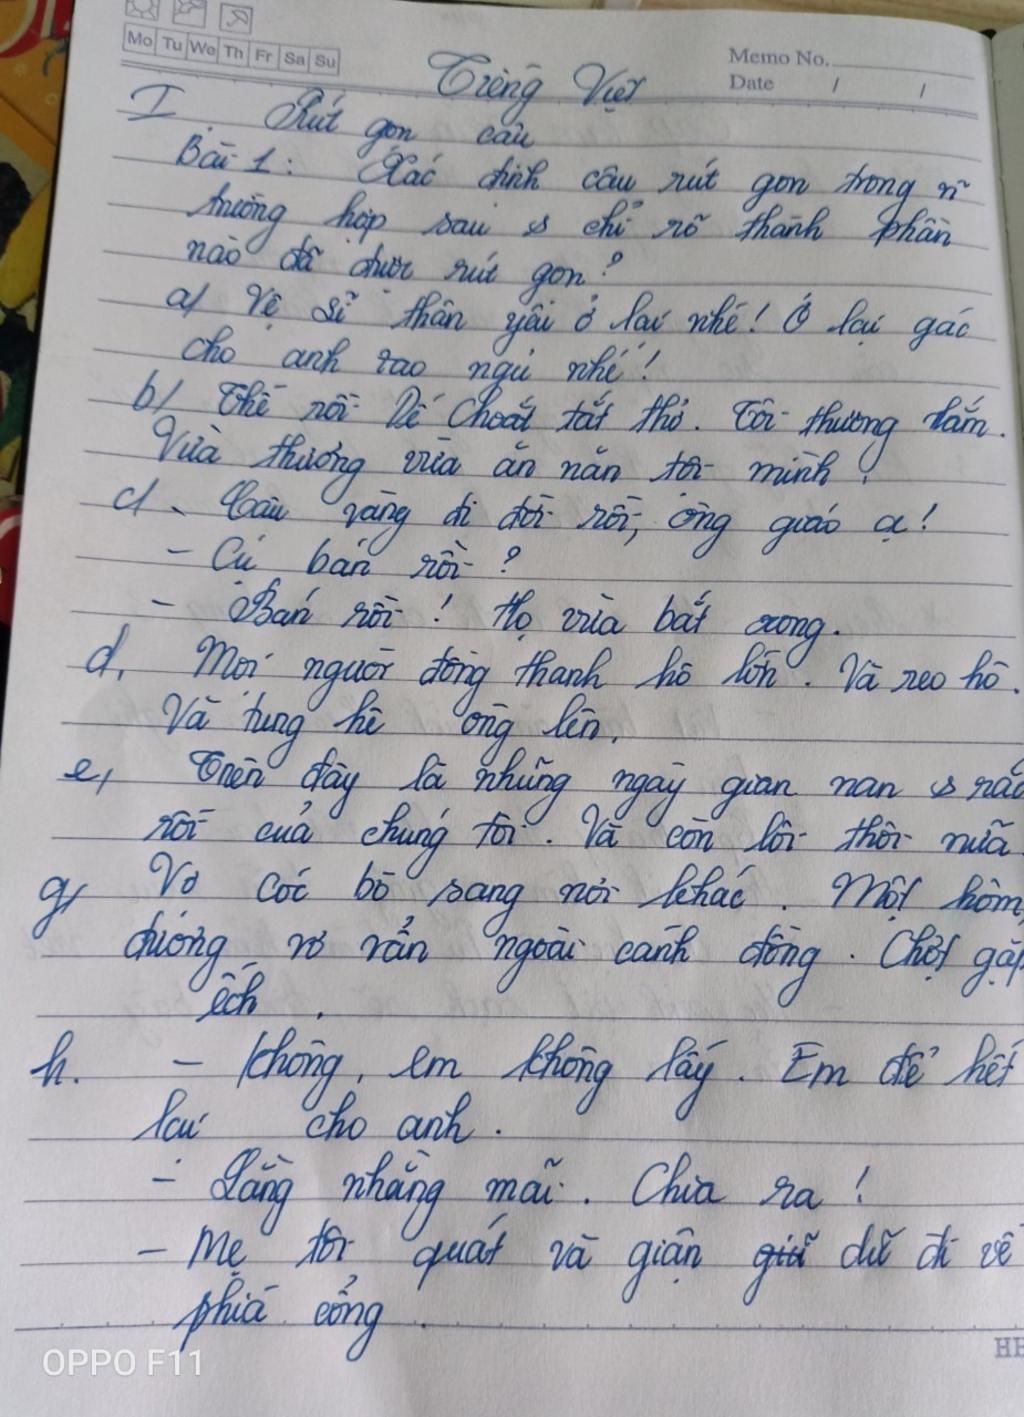 Mo Tu We Th Fr Sa Su
Memo No.
Date / /
Tiếng Việt
I. Rút gọn câu
Bài 1: Xác định câu rút gọn trong
trường hợp sau & chỉ rõ thành phần
nào đã được rút gọn?
a/ Vệ sĩ thân yêu ở lại nhé! Ở lại gác
cho anh tao ngủ nhé!
b/ Thế rồi Dế Choắt tắt thở. Tôi thương lắm.
Vừa thương vừa ăn năn tội mình.
c/ - Cậu vàng đi đời rồi, ông giáo ạ!
- Cụ bán rồi?
- Bán rồi! Họ vừa bắt xong.
d, Mọi người đồng thanh hô lớn. Và reo hò.
Và tung hê ông lên.
e, Trên đây là những ngày gian nan & rắc
rối của chúng tôi. Và còn lôi thôi nữa
g/ Vợ cóc bỏ sang nơi khác. Một hôm,
đương vơ vẩn ngoài cánh đồng. Chợt gặp
ếch.
h. - Không, em không lấy. Em để hết
lại cho anh.
- Lằng nhằng mãi. Chia ra!
- Mẹ tôi quát và giận dữ đi về
phía cổng.
OPPO F11